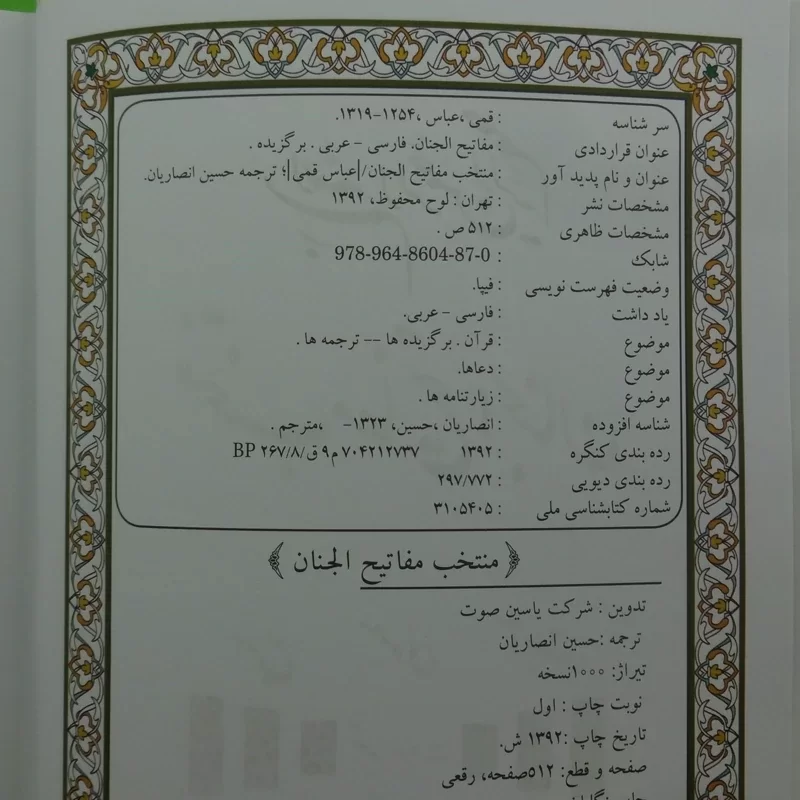 سر شناسه : قمی ،عباس ،۱۲۵۴-۱۳۱۹.
عنوان قراردادی : مفاتیح الجنان. فارسی - عربی . برگزیده .
عنوان و نام پدید آور : منتخب مفاتیح الجنان/|عباس قمی|؛ ترجمه حسین انصاریان.
مشخصات نشر : تهران : لوح محفوظ، ۱۳۹۲
مشخصات ظاهری : ۵۱۲ ص .
شابک : 978-964-8604-87-0
وضعیت فهرست نویسی : فیپا.
یاد داشت : فارسی - عربی.
موضوع : قرآن . برگزیده ها -- ترجمه ها .
موضوع : دعاها.
موضوع : زیارتنامه ها .
شناسه افزوده : انصاریان ،حسین، ۱۳۲۳- ،مترجم .
رده بندی کنگره : ۱۳۹۲ ۷۰۴۲۱۲۷۳۷ م۹ ق/۲۶۷/۸ BP
رده بندی دیویی : ۲۹۷/۷۷۲
شماره کتابشناسی ملی : ۳۱۰۵۴۰۵
منتخب مفاتیح الجنان
تدوین : شرکت یاسین صوت
ترجمه :حسین انصاریان
تیراژ: ۱۰۰۰نسخه
نوبت چاپ : اول
تاریخ چاپ :۱۳۹۲ ش.
صفحه و قطع: ۵۱۲صفحه، رقعی